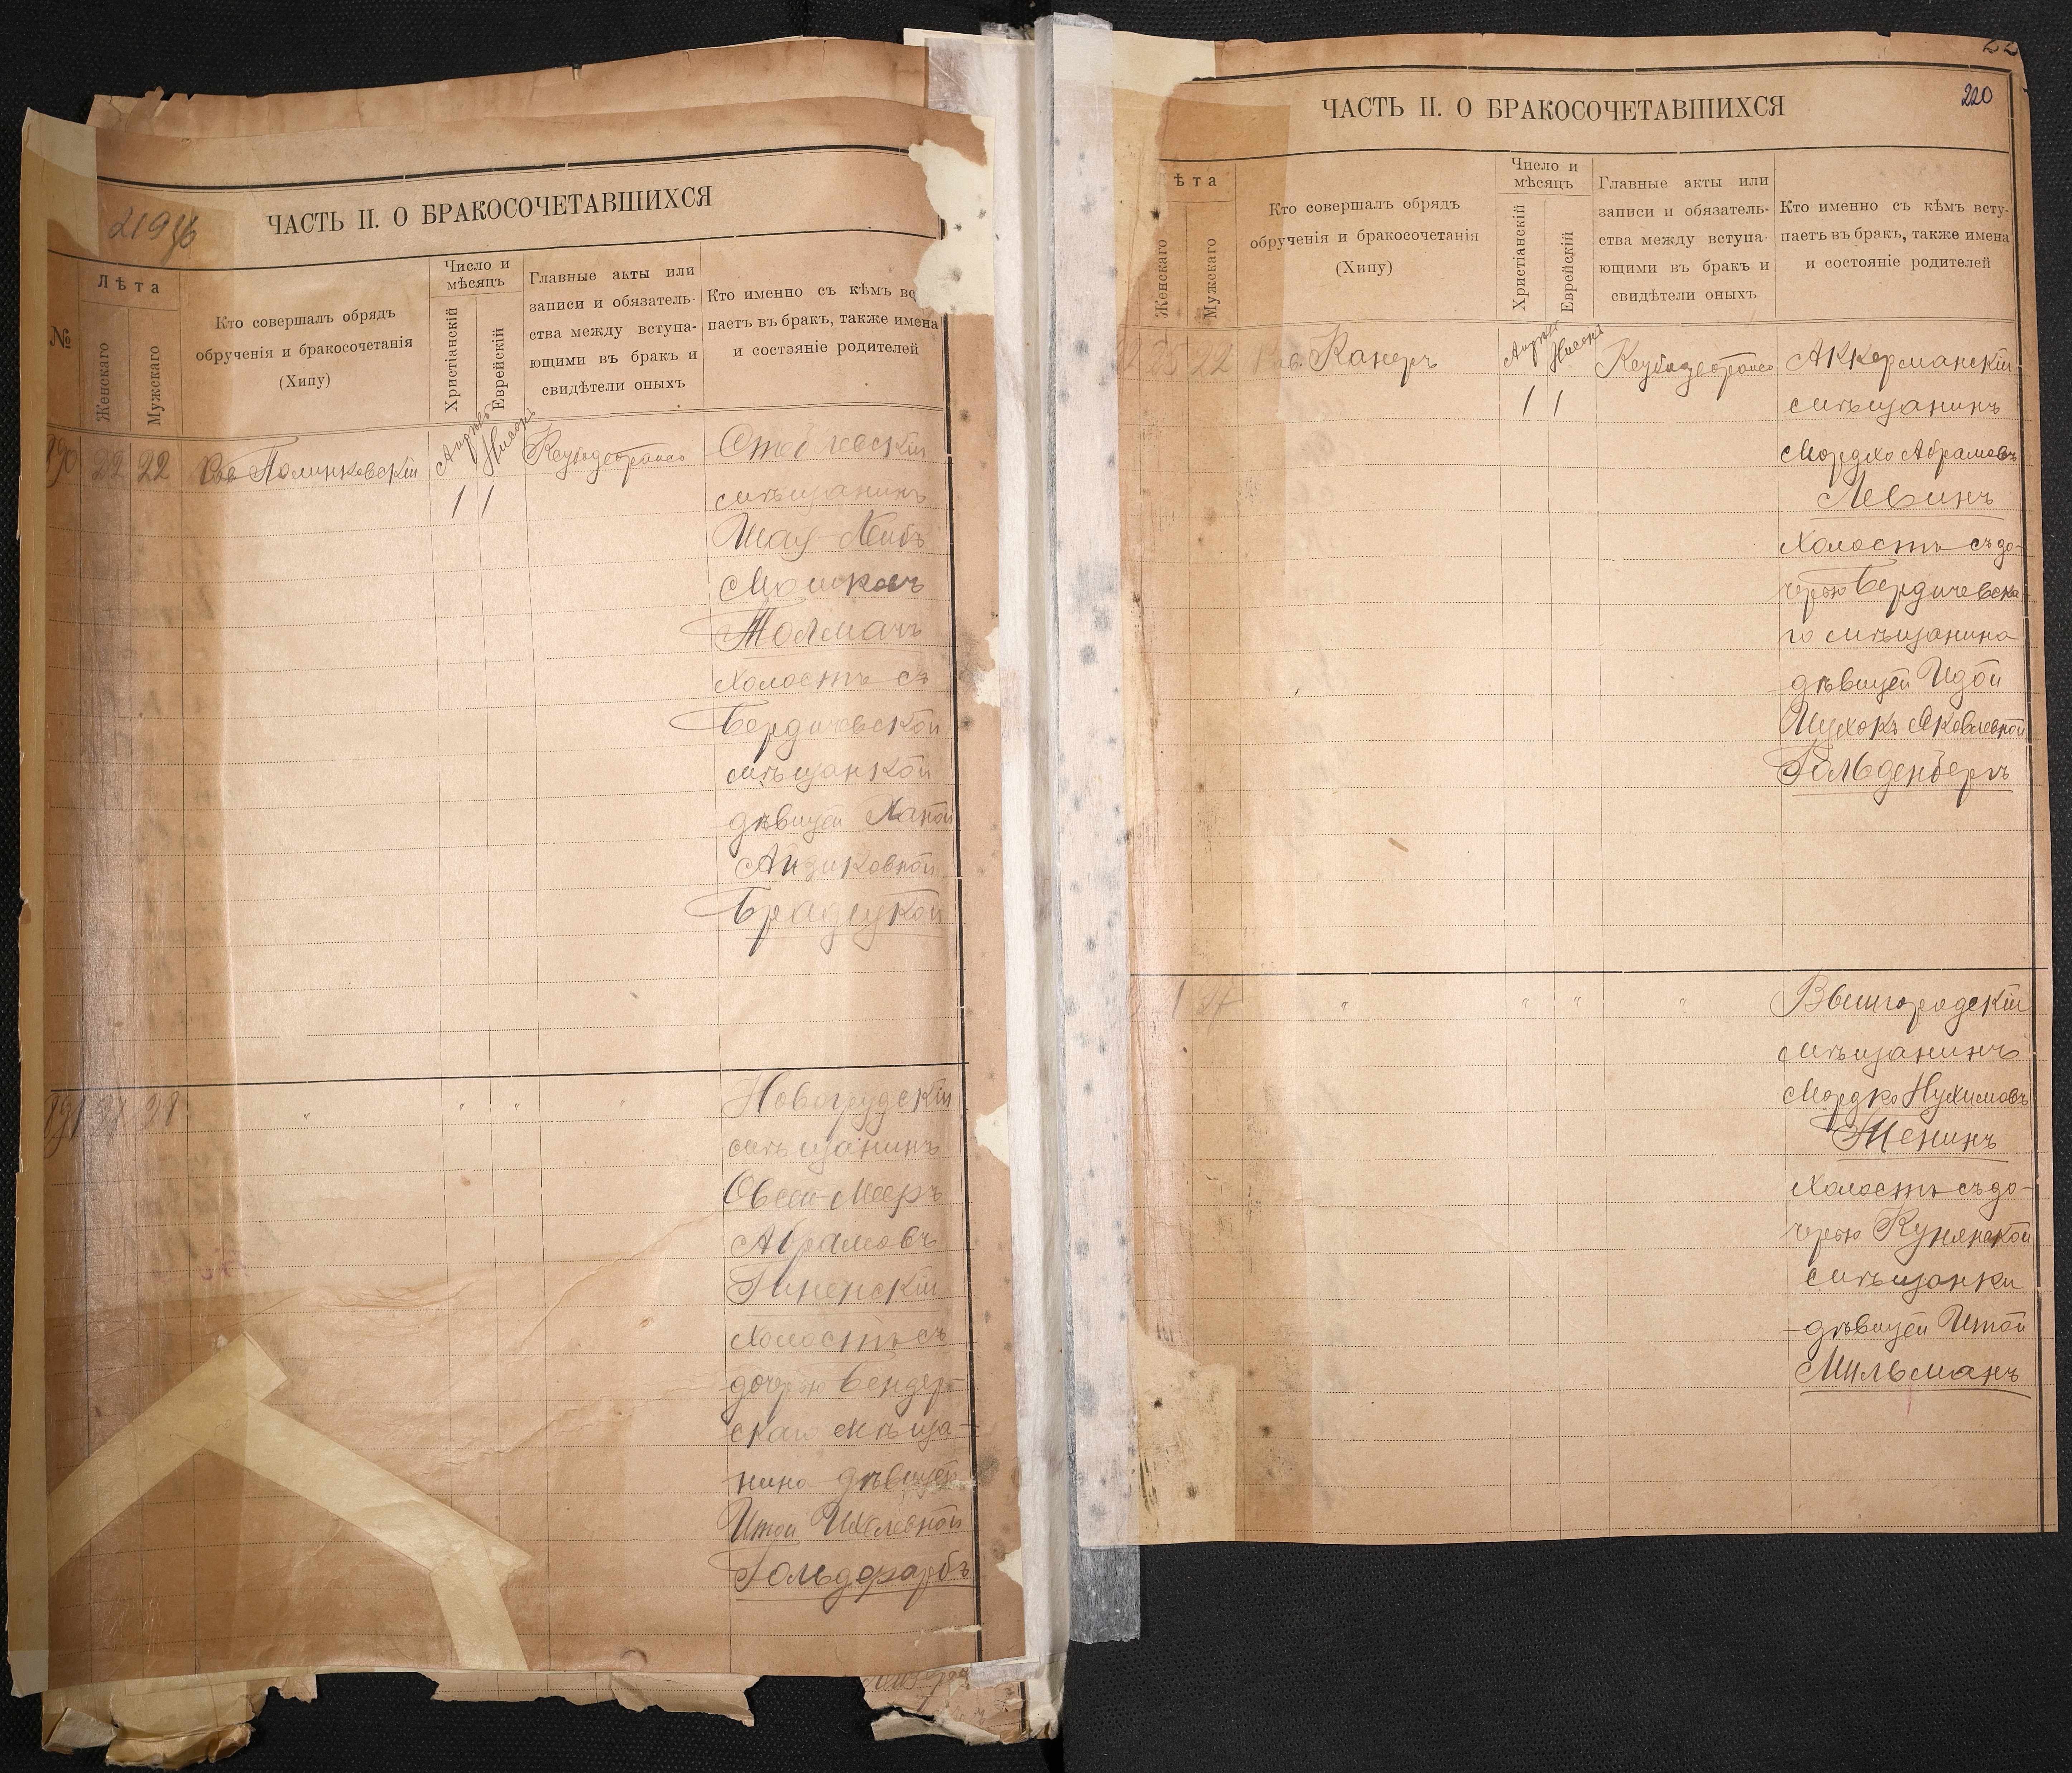 219 об
ЧАСТЬ II. О БРАКОСОЧЕТАВШИХСЯ
№
Лѣта
Женскаго
Мужскаго
Кто совершалъ обрядъ
обрученія и бракосочетанія
(Хипу)
Число и
мѣсяцъ
Христіанскій
Еврейскій
Главные акты или
записи и обязатель-
ства между вступа-
ющими въ бракъ и
свидѣтели оныхъ
Кто именно съ кѣмъ всту-
паетъ въ бракъ, также имена
и состояніе родителей
190 22 22 Полинковскій
Апрѣль Нисонъ
1 1
мѣщанинъ
Шая-Лейбъ
Мошковъ
Толмачъ
холостъ съ
Бердичевской
мѣщанкой
дѣвицей Ханой
Айзиковной
Брадецкой
191 21 21 " " " "
Новогрудскій
мѣщанинъ
Овсей-Мееръ
Абрамовъ
холостъ съ
дочерью Бендер-
скаго мѣща-
нина дѣвицей
Итой
Гольдфарбъ
220
ЧАСТЬ II. О БРАКОСОЧЕТАВШИХСЯ
ѣта
Женскаго
Мужскаго
Кто совершалъ обрядъ
обрученія и бракосочетанія
(Хипу)
Число и
мѣсяцъ
Христіанскій
Еврейскій
Главные акты или
записи и обязатель-
ства между вступа-
ющими въ бракъ и
свидѣтели оныхъ
Кто именно съ кѣмъ всту-
паетъ въ бракъ, также имена
и состояніе родителей
22 Канеръ
Апрѣль Нисонъ
1 1
Аккерманскій
мѣщанинъ
Мордко Абрамовъ
Левинъ
холостъ съ до-
черью Бердичевска-
го мѣщанина
дѣвицей Идой
Яковлевной
Гольденбергъ
" " " "
Вышгородскій
мѣщанинъ
Мордко Нухимовъ
Женинъ
холостъ съ до-
черью Кунянской
мѣщанки
дѣвицей Итой
Мильманъ